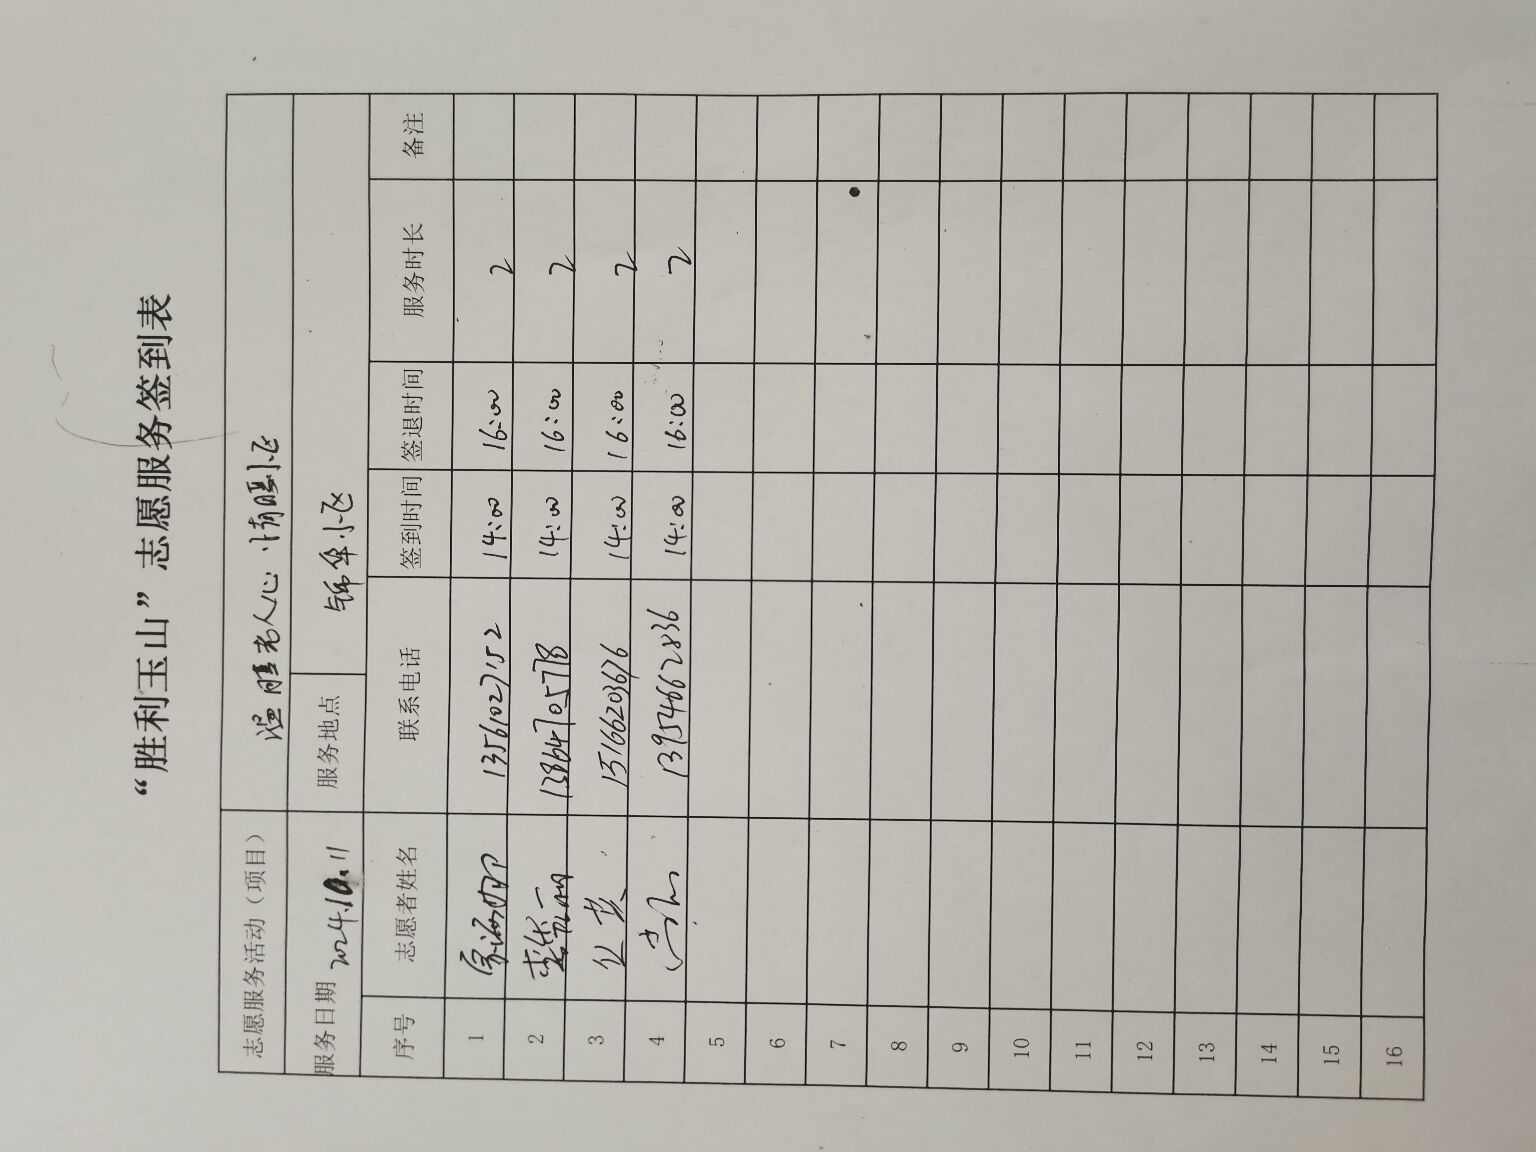 “胜利玉山”志愿服务签到表
志愿服务活动（项目） 温暖老人心·情暖小区
服务日期 2024.10.11 服务地点 锦华小区
序号 志愿者姓名 联系电话 签到时间 签退时间 服务时长 备注
1 13561027152 14:00 16:00 2
2 13864705778 14:00 16:00 2
3 15166203676 14:00 16:00 2
4 13954662836 14:00 16:00 2
5
6
7
8
9
10
11
12
13
14
15
16